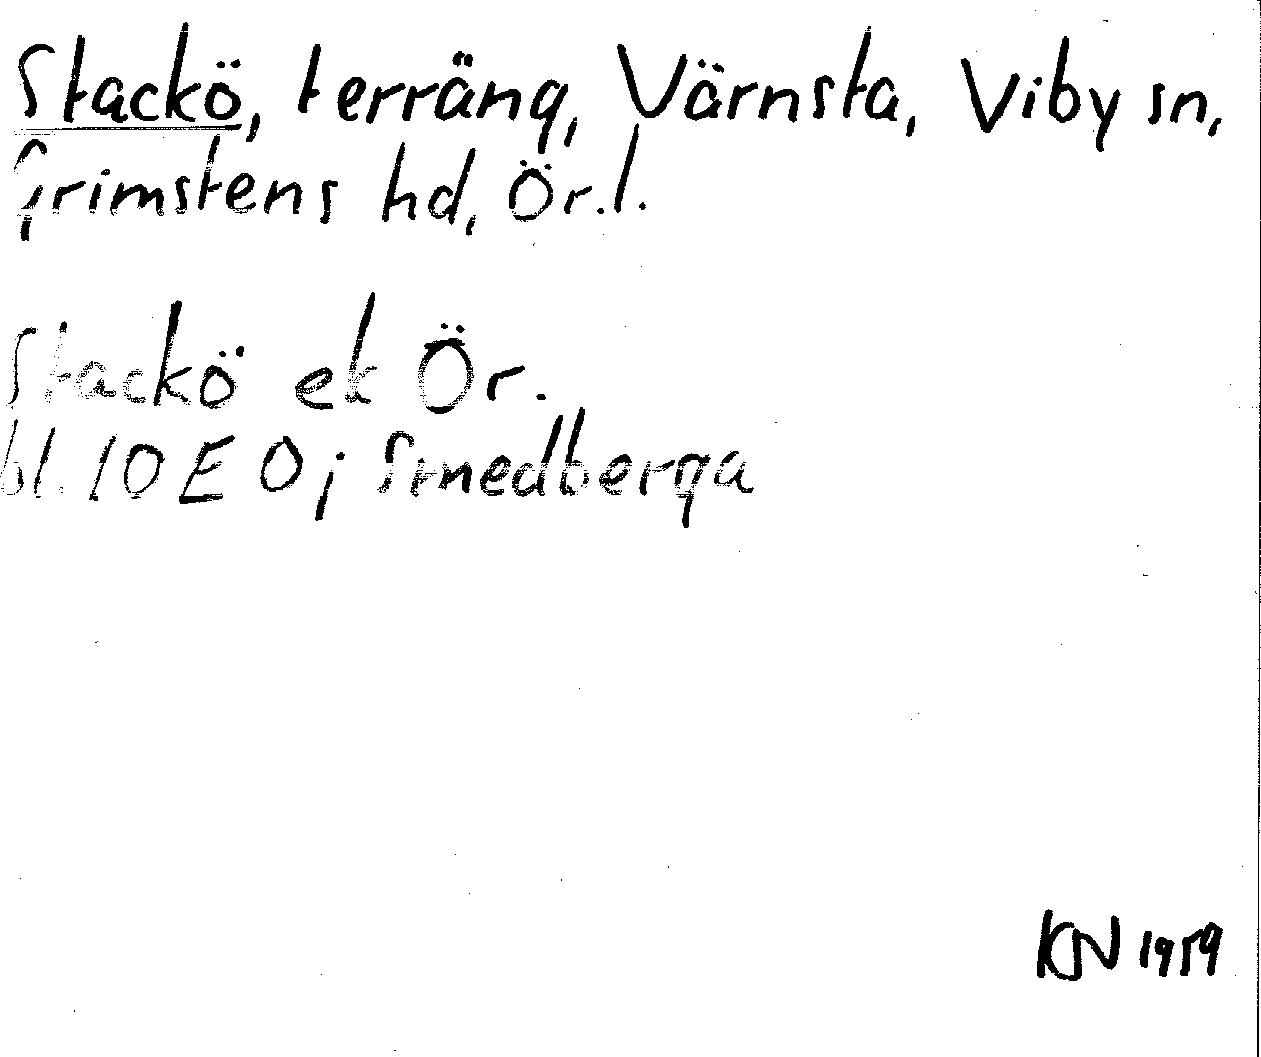 Stackö, terräng, Värnsta, Viby sn,
Grimstens hd, Ör.l.
Stackö ek Ör.
bl. 10 E 0j Smedberga
KN 1959